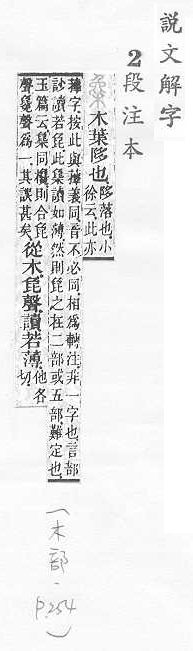 說文解字
2段注本
木葉陊也。陊落也。小
徐云。此亦
蘀字。按此與蘀義同。音不必同。相爲轉注。非一字也。言部
診讀若㲋。此㲋讀如薄。然則㲋之在二部或五部。難定也。
玉篇云。㯱同櫡。則合㲋
聲㲋聲爲一。其誤甚矣。從木。㲋聲。讀若薄。他各
切。
(木部.
P.254)